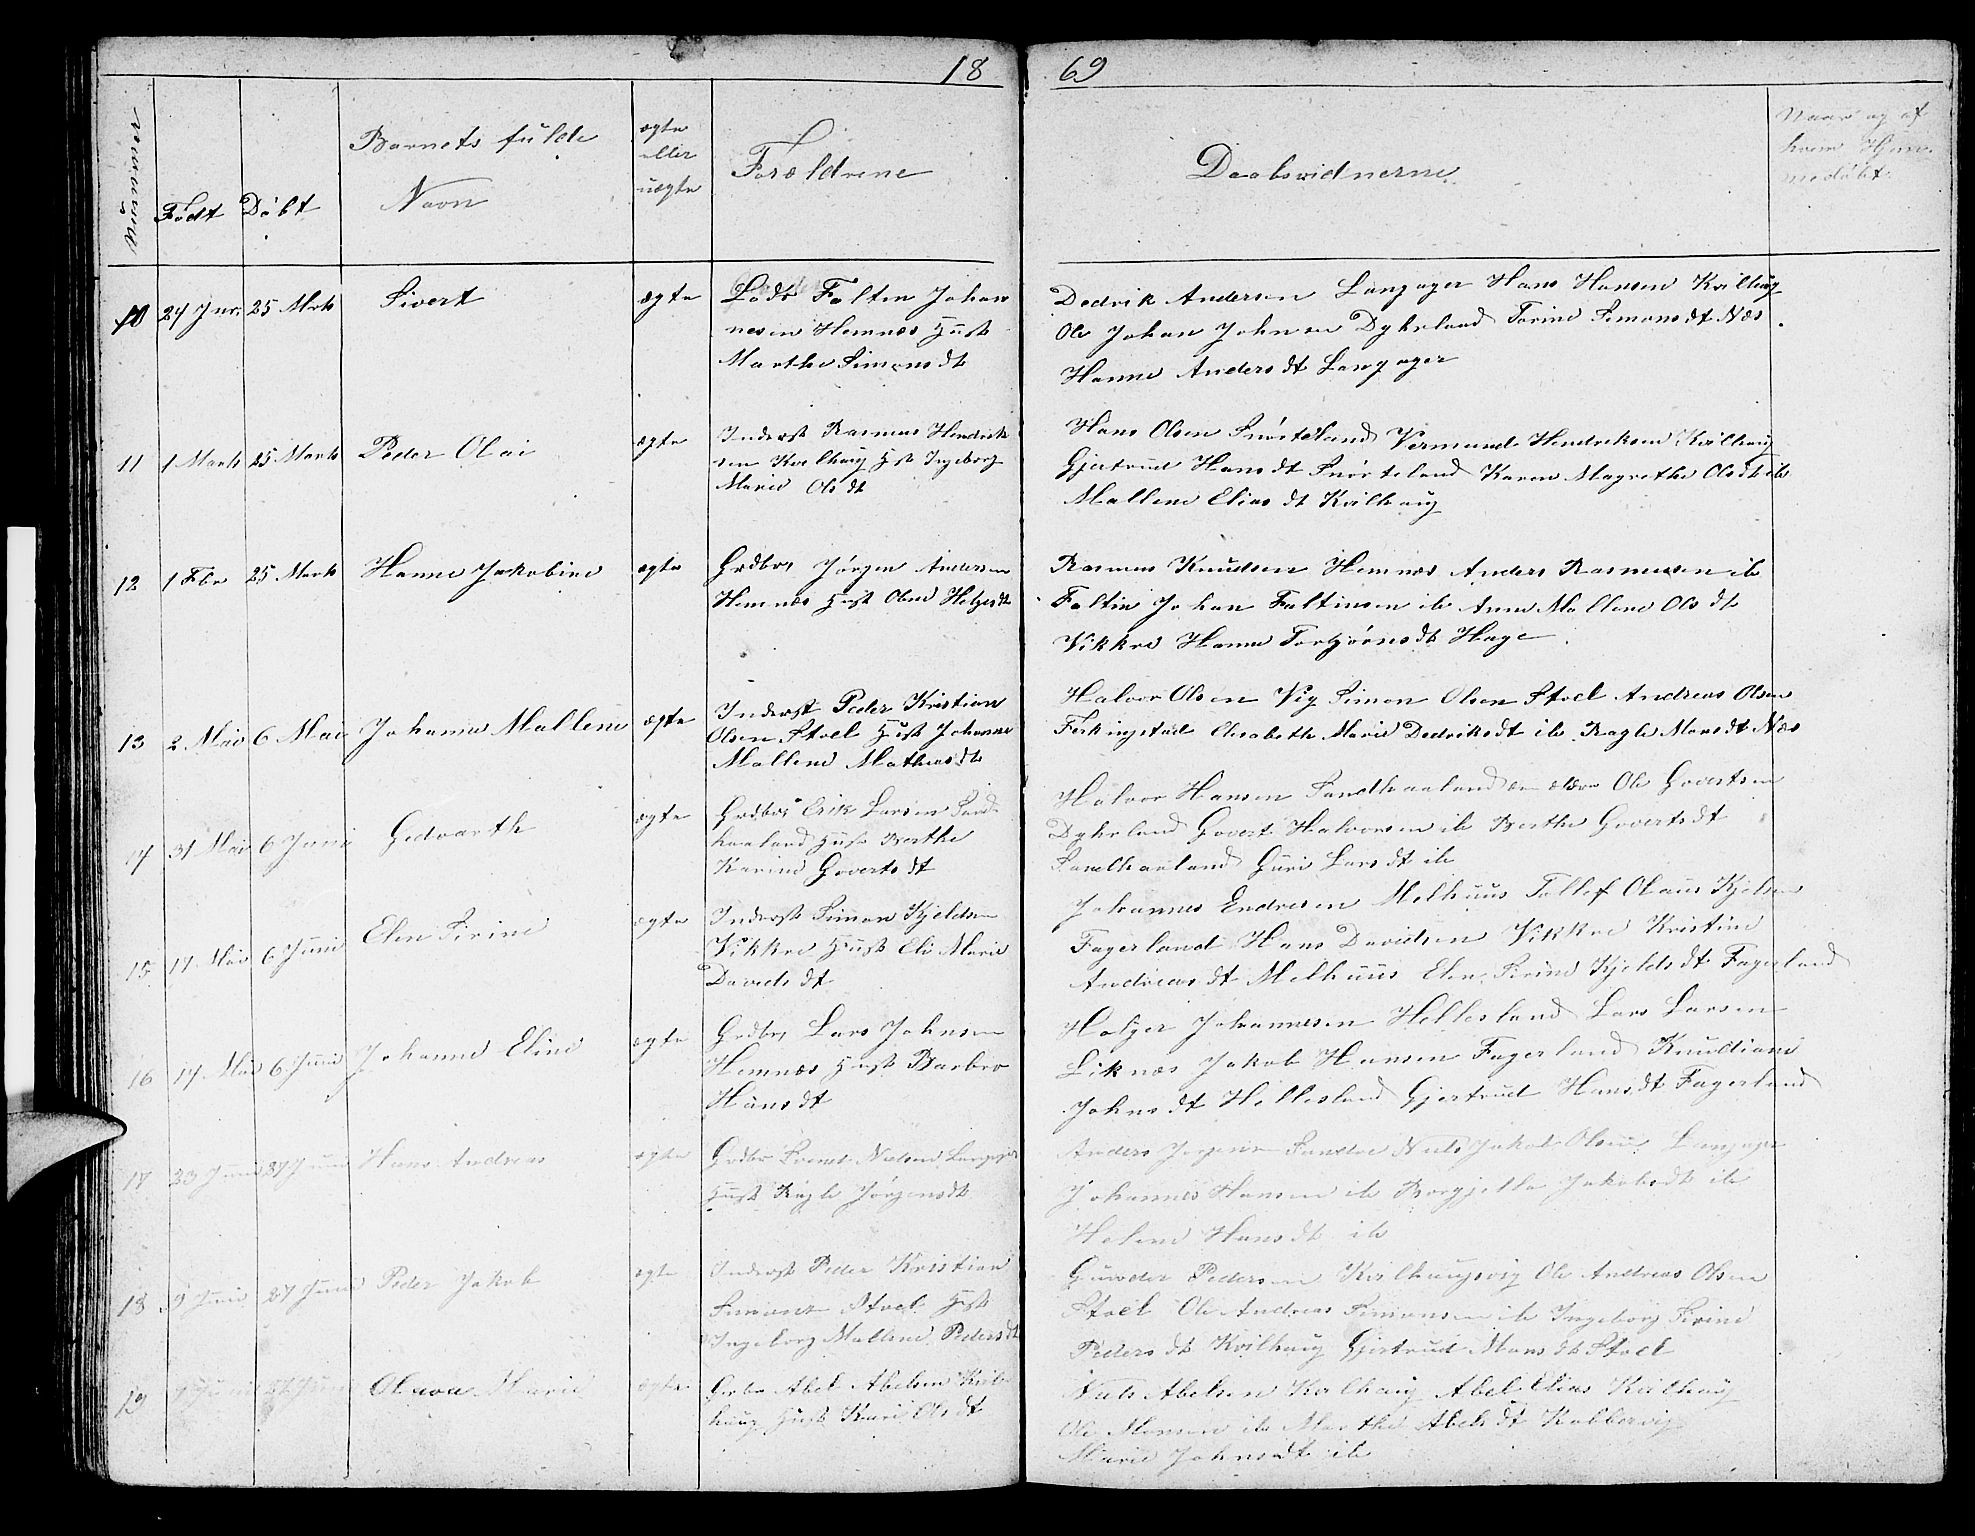 18 69
Nummer
Födt
Döbt
Barnets fulde
Navn
ægte
eller
uægte
Forældrene
Daabsvidnerne
Naar og af
hvem Hjem-
medöbt
10 24 Jnr 25 Mrts Sivert ægte
Lods Falten Johan
nesen Hemnæs Hust
Marthe Simonsdt
Dedrik Andersen Langager Hans Hansen Kvilhaug
Ole Johan Johnsen Dyhrland Torine Simonsdt Næs
Hanne Andersdt Langager
11 1 Marts 25 Marts Peder Olai ægte
Inderst Rasmus Hendrik
sen Kvilhaug Hst Ingeborg
Marie Olsdt
Hans Olsen Snörteland Vermund Hendriksen Kvilhaug
Gjertrud Hansdt Snörteland Karen Magrethe Olsdt ib
Mallene Eliasdt Kvilhaug
12 1 Fbr 25 Marts Hanne Jakobine ægte
Grdbr Jörgen Andersen
Hemnæs Hust Oline Holgersdt
Rasmus Knudsen Hemnæs Anders Rasmusen ib
Faltin Johan Faltinsen ib Anne Mallene Olsdt
Vikkre Hanne Torbjörnsdt Hage
13 2 Mai 6 Mai Johanne Mallene ægte
Inderst Peder Kristian
Olsen Stoel Hust Johanne
Mallene Mathiasdt
Halvor Olsen Vig Simon Olsen Stoel Andreas Olsen
Ferkingstad Elisabeth Marie Dedriksdt ib Ragle Monsdt Næs
14 31 Mai 6 Juni Gedvarth ægte
Grdbr Erik Larsen Sand
haaland Hust Berthe
Karine Govertsdt
Halvor Hansen Sandhaaland den ældre Ole Govertsen
Dyhrland Govert Halvorsen ib Berthe Govertsdt
Sandhaaland Guri Larsdt ib
15 17 Mai 6 Juni Elen Sirine ægte
Inderst Simon Kjeldsen
Vikkre Hust Eli Marie
Davidsdt
Johannes Endresen Melhuus Tollef Olaus Kjelsen
Fagerland Hans Davidsen Vikkre Kristine
Andreasdt Melhuus Elen Sirine Kjeldsdt Fagerland
16 14 Mai 6 Juni Johanne Eline ægte
Grdbr Lars Johnsen
Hemnæs Hust Barbro
Hansdt
Holger Johannesen Hellesland Lars Larsen
Liknæs Jakob Hansen Fagerland Knudiane
Johnsdt Hellesland Gjertrud Hansdt Fagerland
17 23 Juni 27 Juni Hans Andreas ægte
Grdbr Svend Nielsen Langager
Hust Ragle Jörgensdt
Anders Jörgensen Sandve Niels Jakob Olsen Langager
Johannes Hansen ib Borgjella Jakobsdt ib
Helene Hansdt ib
18 9 Juni 27 Juni Peder Jakob ægte
Inderst Peder Kristian
Simonsen Stoel Hst
Ingeborg Mallene Pedersdt
Gunder Pedersen Kvilhaugsvig Ole Andreas Olsen
Stoel Ole Andreas Simonsen ib Ingeborg Sirine
Pedersdt Kvilhaug Gjertrud Monsdt Stoel
19 7 Juni 27 Juni Olava Marie ægte
Grdbr Abel Abelsen Kvil-
haug Hust Kari Olsdt
Niels Abelsen Kvilhaug Abel Elias Kvilhaug
Ole Monsen ib Marthe Abelsdt Kobbervig
Marie Johnsdt ib